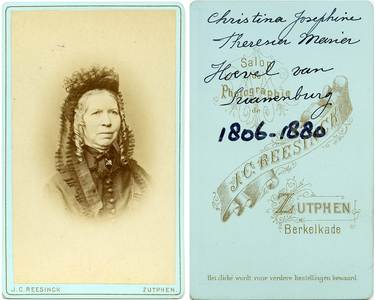 J.C. REESINCK ZUTPHEN.
Christina Josephine
Theresia Mavier
Hoevel van
Zwanenburg
1806-1880
Salon
de
Photographie
de
J.C. REESINCK
ZUTPHEN
Berkelkade
Het cliché wordt voor verdere bestellingen bewaard.